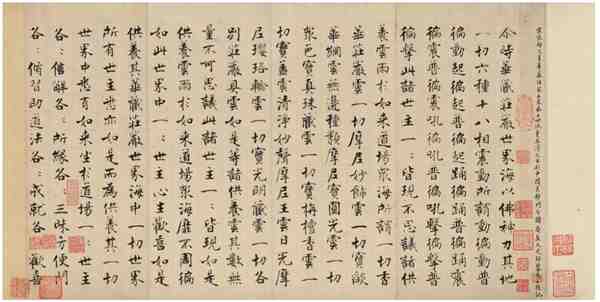 尒時華藏莊嚴世界海以佛神力其地
一切六種十八相震動所謂動徧動普
徧動起徧起普徧起踊徧踊普徧踊震
徧震普徧震吼徧吼普徧吼擊徧擊普
徧擊此諸世主一一皆現不思議諸供
養雲雨於如來道場眾海所謂一切香
華莊嚴雲一切摩尼妙飾雲一切寶燄
華網雲無邊種類摩尼寶圓光雲一切
眾色寶真珠藏雲一切寶栴檀香雲一
切寶蓋雲清淨妙聲摩尼王雲日光摩
尼瓔珞輪雲一切寶光明藏雲一切各
別莊嚴具雲如是等諸供養雲其數無
量不可思議此諸世主一一皆現如是
供養雲雨於如來道場眾海靡不周徧
如此世界中一一世主心生歡喜如是
供養其華藏莊嚴世界海中一切世界
所有世主悉亦如是而為供養其一切
世界中悉有如來坐於道場一一世主
各各信解各各所緣各各三昧方便門
各各修習助道法各各成就各各歡喜